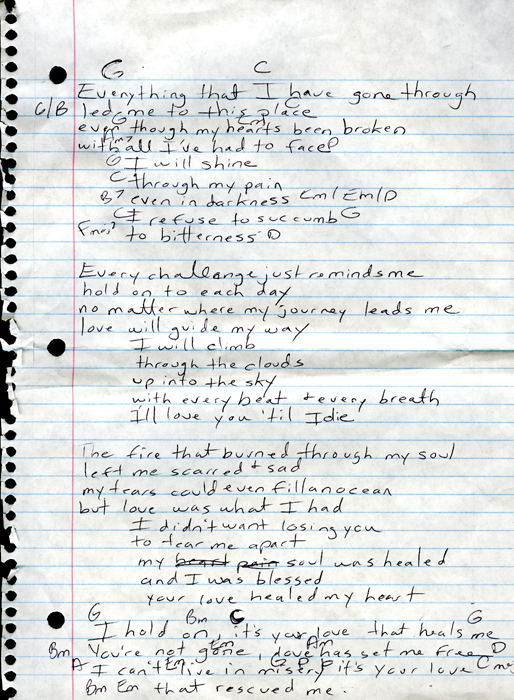 G C
Everything that I have gone through
G/B C
led me to this place
G Em7
even though my hearts been broken
Am7 D
with all I've had to face
G I will shine
C through my pain
B7 even in darkness Em/Em/D
C I refuse to succumb G
to bitterness D
Every challenge just reminds me
hold on to each day
no matter where my journey leads me
love will guide my way
I will climb
through the clouds
up into the sky
with every beat + every breath
I'll love you 'til I die
The fire that burned through my soul
left me scarred + sad
my tears could even fill an ocean
but love was what I had
I didn't want losing you
to tear me apart
my heart pain soul was healed
and I was blessed
your love healed my heart
G Bm C G
I hold on, it's your love that heals me
Bm Em Am D
You're not gone, love has set me free
A Em G D
I can't live in misery it's your love
Bm Em that rescued me.